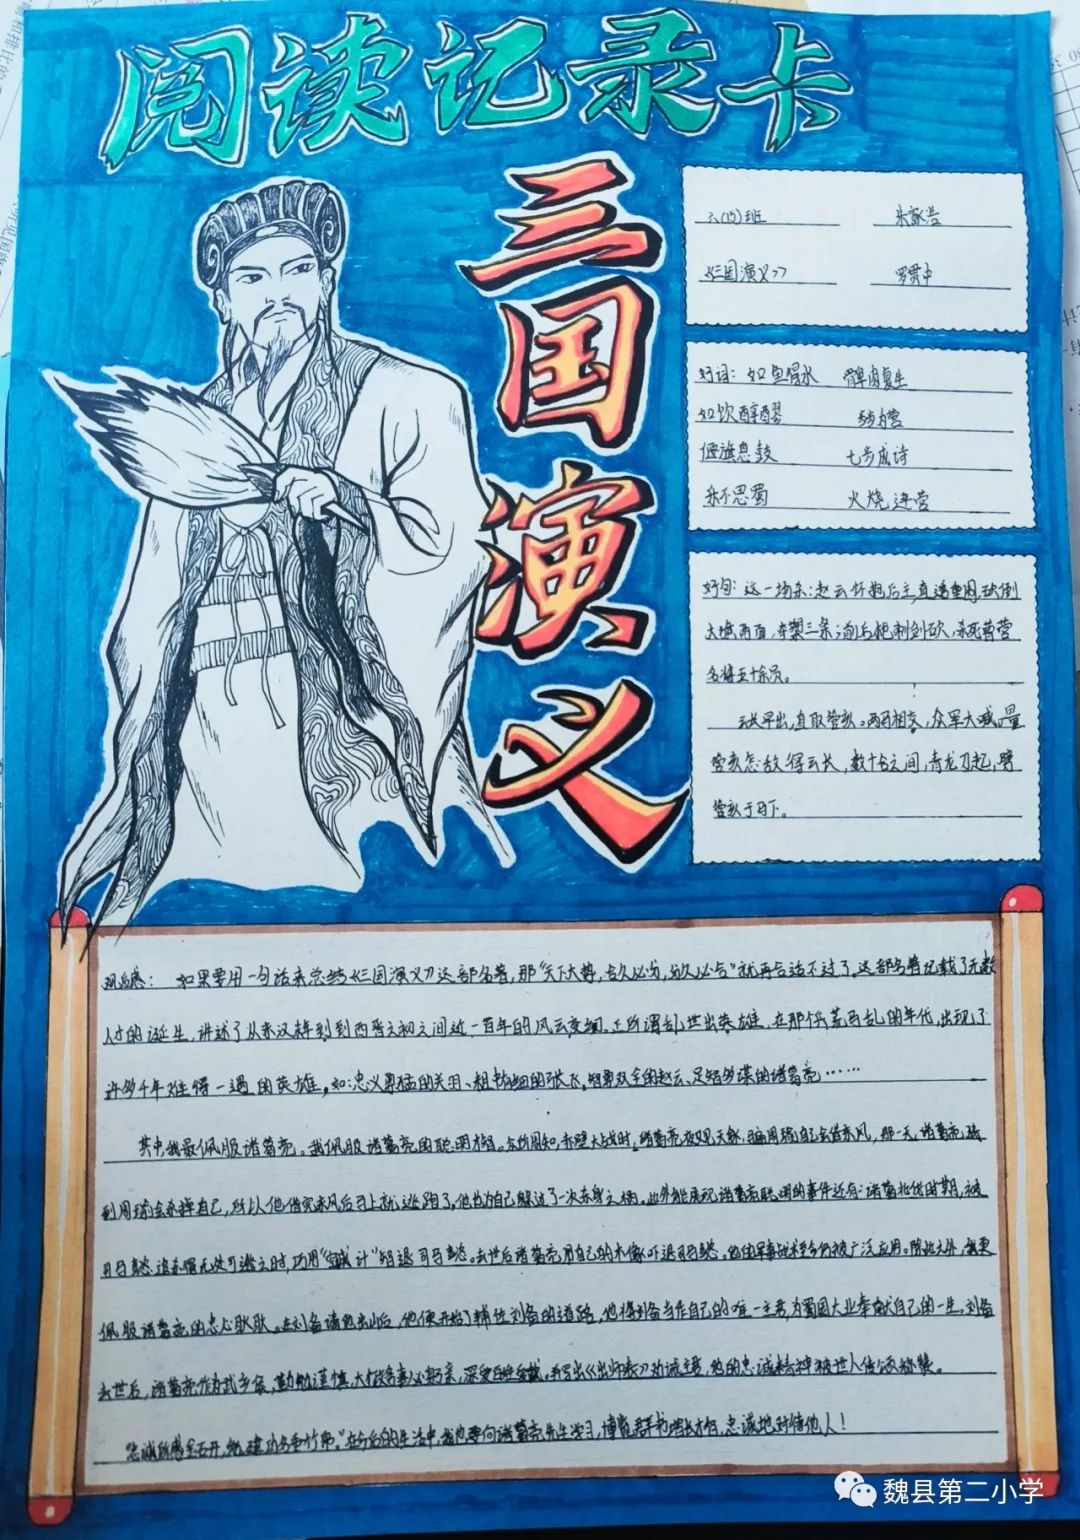 阅读记录卡
三国演义
六(15)班 朱家浩
《三国演义》 罗贯中
好词：如鱼得水 髀肉复生
如饮醇醪
偃旗息鼓 七步成诗
乐不思蜀 火烧连营
好句：这一场杀：赵云怀抱后主，直透重围，砍倒
大旗两面，夺槊三条；前后枪刺剑砍，杀死曹营
名将五十余员。
云长早出，直取管亥。两马相交，众军大喊。量
管亥怎敌得云长，数十合之间，青龙刀起，劈
管亥于马下。
观后感： 如果要用一句话来总结《三国演义》这部名著，那"天下大势，合久必分，分久必合"就再合适不过了。这部名著记载了无数
人才的诞生，讲述了从东汉末年到到西晋之初之间近一百年的风云变幻。正所谓乱世出英雄，在那个兵荒马乱的年代，出现了
许多千年难得一遇的英雄。如：忠义勇猛的关羽、粗中有细的张飞，智勇双全的赵云、足智多谋的诸葛亮……
其中，我最佩服诸葛亮。我佩服诸葛亮的聪明才智。众所周知，赤壁大战时，诸葛亮夜观天象，骗周瑜自己会借东风，那一天，诸葛亮猜
到周瑜会杀掉自己，所以他借完东风后马上就逃跑了，他也为自己躲过了一次杀身之祸。此外能展现诸葛亮聪明的事件还有：诸葛北伐时期，被
司马懿追杀 无处可 之时，巧用"空城计"智退司马懿。去世后诸葛亮用自己的木像吓退司马懿。他的军事战术至今仍被广泛应用。除此之外，我更
佩服诸葛亮的忠心耿耿。在刘备请他出山后，他便开始了辅佐刘备的道路，他将刘备当作自己的唯一主君，为蜀国大业奉献自己的一生。刘备
去世后，诸葛亮作为武乡侯，勤勉谨慎，大小政务事必躬亲，深受百姓爱戴。并写出《出师表》劝诫主君，他的忠诚精神被世人传颂称赞。
"忠诚所感金石开，勉建功名垂竹帛。"在今后的生活中，我也要向诸葛亮先生学习，博览群书增长才智，忠诚地对待他人！
魏县第二小学